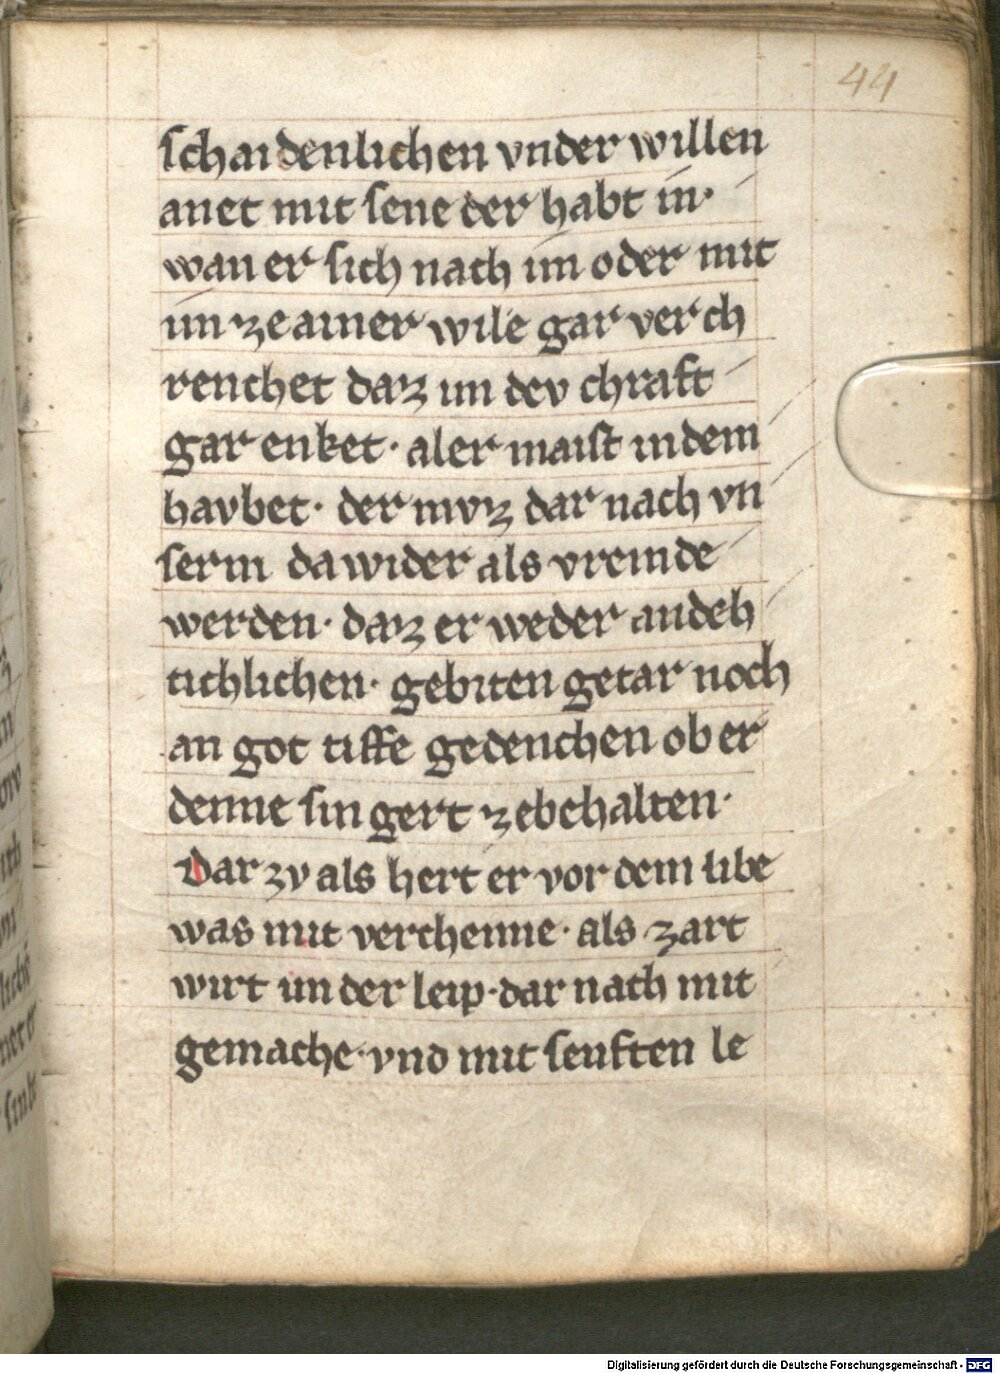 44
ſchaidenlichen vnder willen
anet mit ſene der habt in·
wan er ſich nach im oder mit
im ze ainer wile gar verch
renchet daz im dev chraft
gar enket· aler maiſt in dem
havbet· der mvz dar nach vn
ſerm da wider als vremde
werden· daz er weder andeh
tichlichen· gebiten getar noch
an got tiffe gedenchen ob er
denne ſin gert ze behalten·
Dar zv als hert er vor dem libe
was mit verchenne· als zart
wirt im der leip· dar nach mit
gemache· vnd mit ſenften le
Digitalisierung gefördert durch die Deutsche Forschungsgemeinschaft - DFG